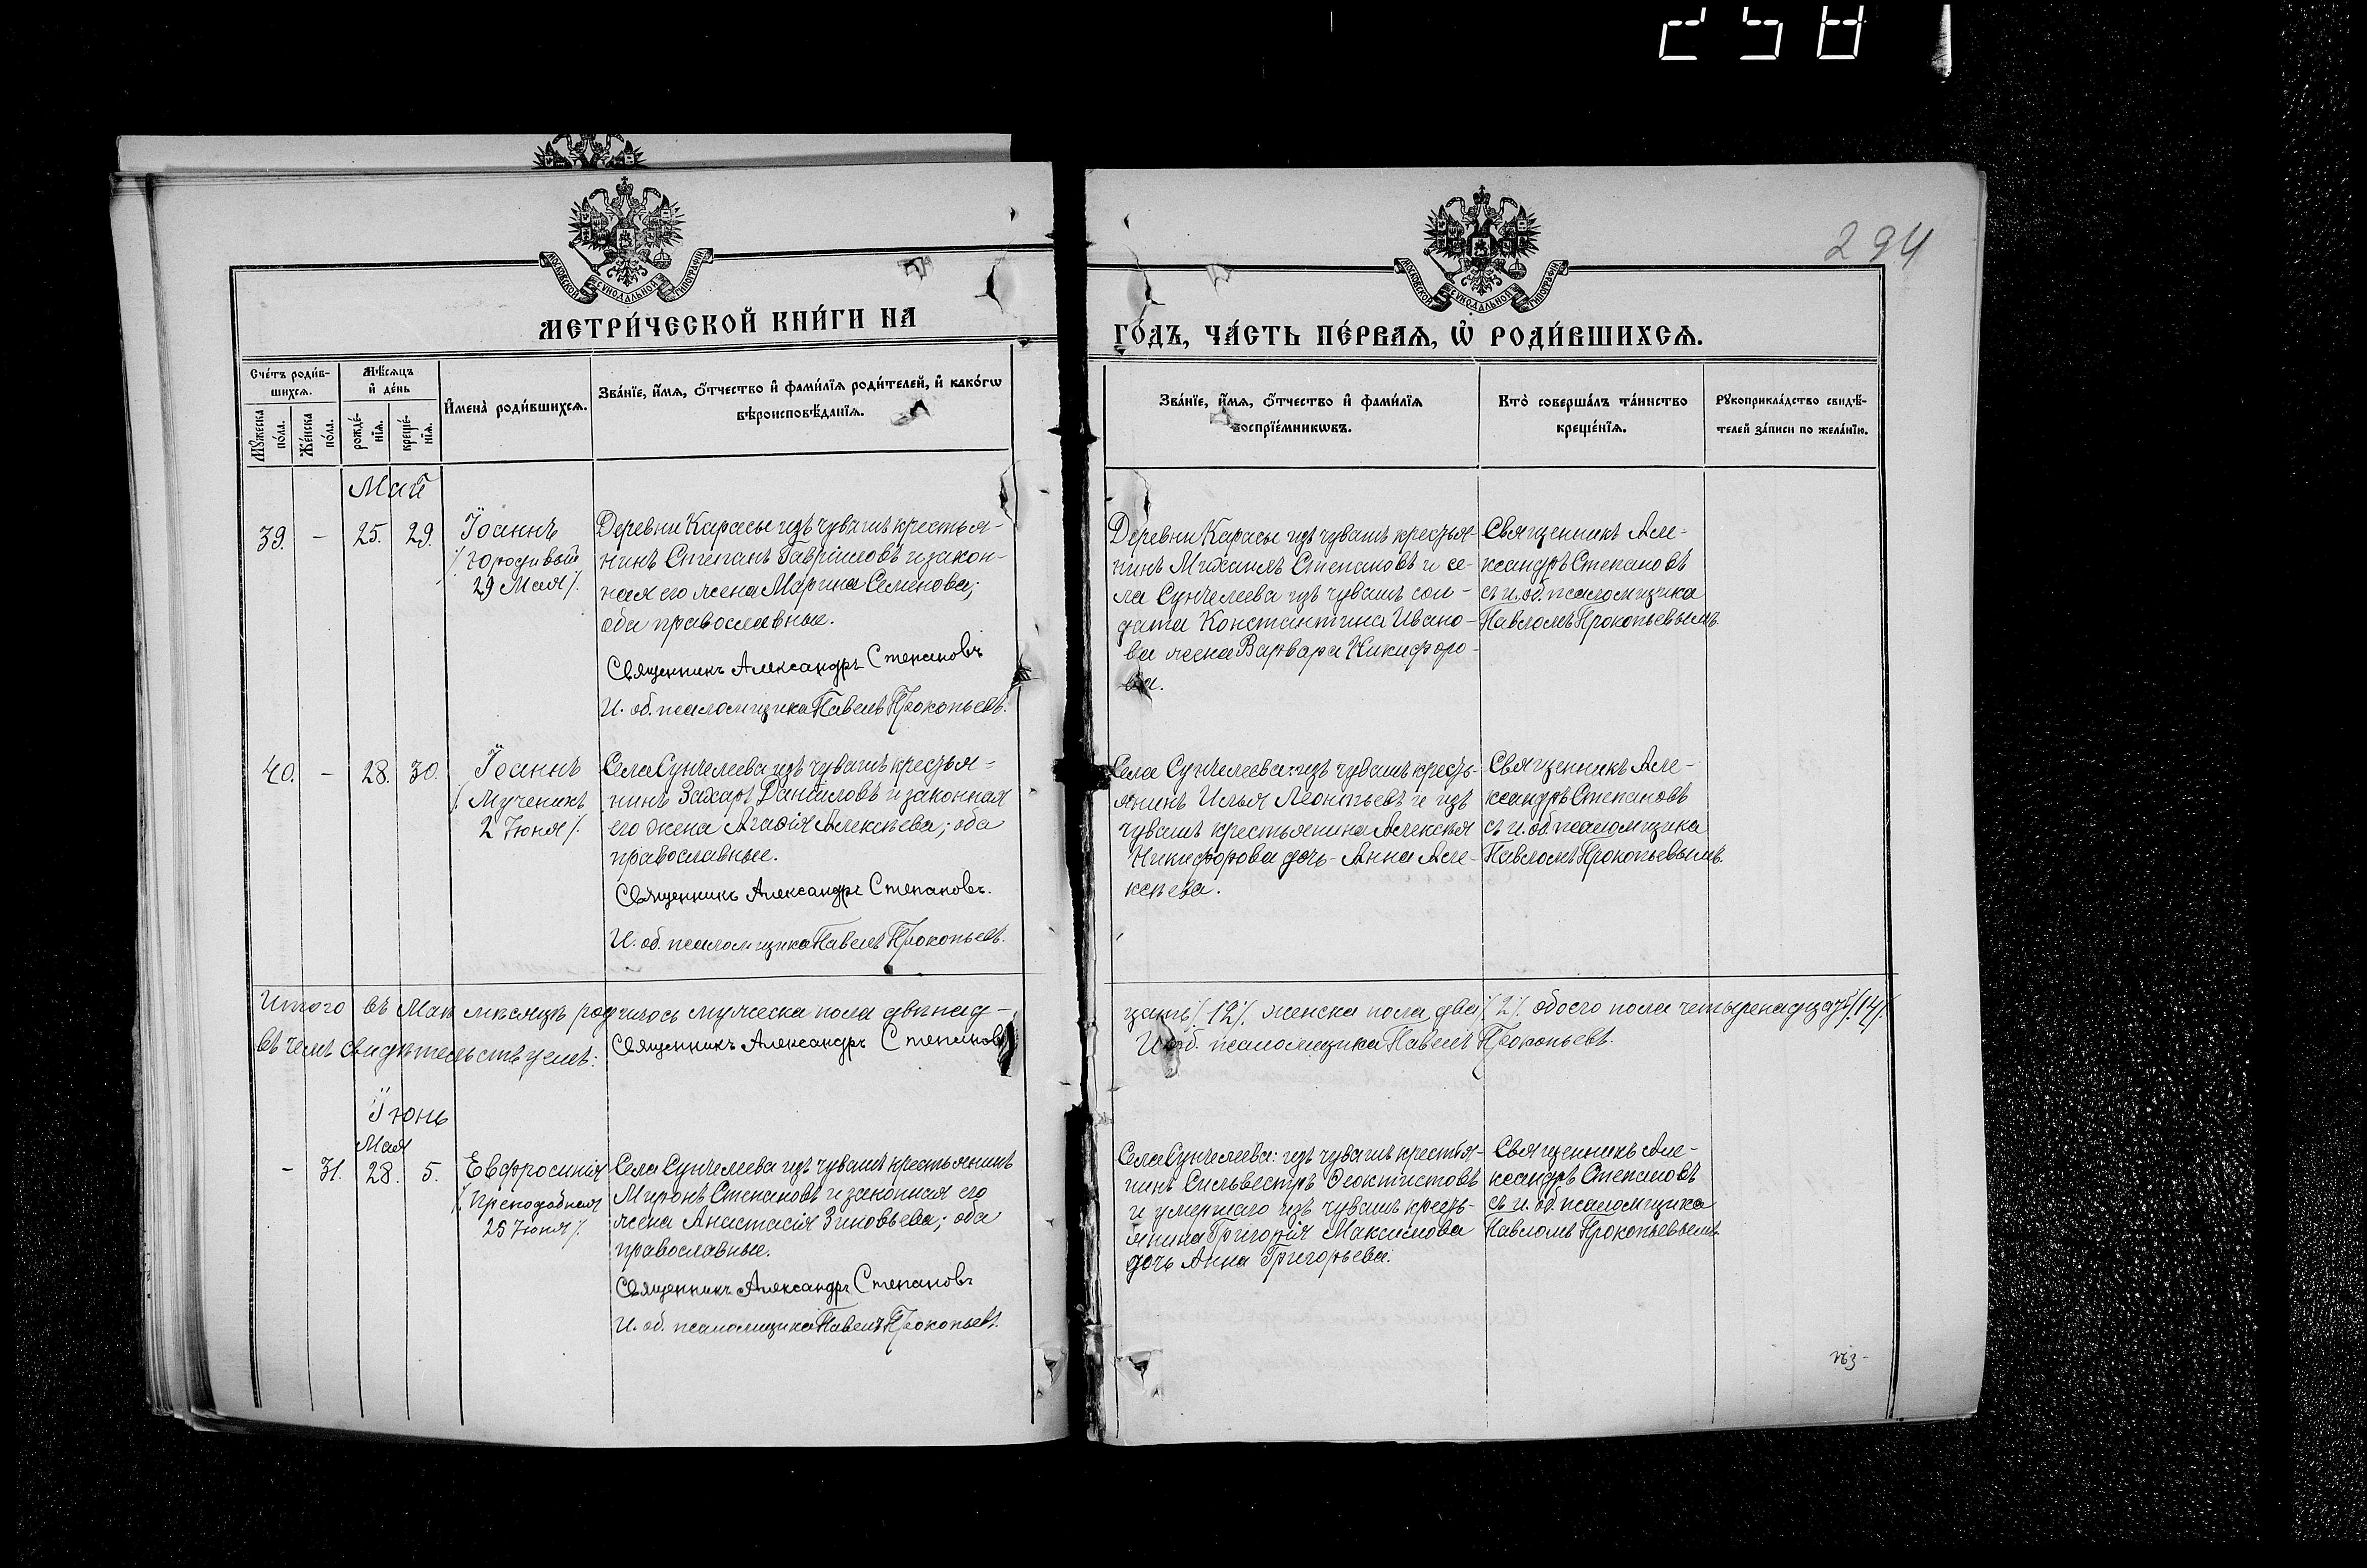 2581
294
МОСКОВСКОЙ СѴНОДАЛЬНОЙ ТИПОГРАФІИ
МОСКОВСКОЙ СѴНОДАЛЬНОЙ ТИПОГРАФІИ
МЕТРИ́ЧЕСКОЙ КНИ́ГИ НА
ГО́ДЪ, ЧА́СТЬ ПЕ́РВАѦ, Ѡ҆ РОДИ́ВШИХСѦ.
Сче́тъ роди́в-
шихсѧ.
Мꙋ́жеска
по́ла.
Же́нска
по́ла.
Мѣ́сѧцъ
и҆ де́нь
рожде́-
нїѧ.
креще́-
нїѧ.
И҆мена̀ роди́вшихсѧ.
Зва́нїе, и҆́мѧ, ѻ҆́тчество и҆ фами́лїѧ роди́телей, и҆ како́гѡ
вѣроисповѣ́данїѧ.
Зва́нїе, и҆́мѧ, ѻ҆́тчество и҆ фами́лїѧ
воспрїе́мникѡвъ.
Кто̀ соверша́лъ та́инство
креще́нїѧ.
Рꙋкоприкла́дство свидѣ́-
телей за́писи по жела́нїю.
Май
39. - 25. 29.
Іоаннъ
/. Юродивый
29 Мая /.
Деревни Карасы изъ чувашъ крестья-
нинъ Степанъ Гавриловъ и закон-
ная его жена Марина Семенова;
оба православные.
Священникъ Александръ Степановъ
И. об. псаломщика Павелъ Прокопьевъ.
Деревни Карасы изъ чувашъ крестья-
нинъ Михаилъ Степановъ и се-
ла Сунчелеева изъ чувашъ сол-
дата Константина Ивано-
ва жена Варвара Никифоро-
ва.
Священникъ Але-
ксандръ Степановъ
съ и. об. псаломщика
Павломъ Прокопьевымъ.
40. - 28. 30.
Іоаннъ
/. Мученикъ
2 Іюня /.
Села Сунчелеева изъ чувашъ крестья-
нинъ Захаръ Даниловъ и законная
его жена Агаѳія Алексѣева; оба
православные.
Священникъ Александръ Степановъ.
И. об. псаломщика Павелъ Прокопьевъ.
Села Сунчелеева: изъ чувашъ кресть-
янинъ Илья Леонтьевъ и изъ
чувашъ крестьянина Алексѣя
Никифорова дочь Анна Але-
ксѣева.
Священникъ Але-
ксандръ Степановъ
съ и. об. псаломщика
Павломъ Прокопьевымъ.
Итого въ Маѣ мѣсяцѣ родилось мужеска пола двѣнад-
цать /. 12 /. женска пола два /. 2 /. обоего пола четыренадцать /. 14 /.
въ чемъ свидѣтельствуемъ:
Священникъ Александръ Степановъ
И. об. псаломщика Павелъ Прокопьевъ.
Іюнь
Мая
- 31. 28. 5.
Евфросинія
/. Преподобная
25 Іюня /.
Села Сунчелеева изъ чувашъ крестьянинъ
Миронъ Степановъ и законная его
жена Анастасія Зиновьева; оба
православные.
Священникъ Александръ Степановъ
И. об. псаломщика Павелъ Прокопьевъ.
Села Сунчелеева: изъ чувашъ крестья-
нинъ Сильвестръ Ѳеоктистовъ
и умершаго изъ чувашъ кресть-
янина Григорія Максимова
дочь Анна Григорьева.
Священникъ Але-
ксандръ Степановъ
съ и. об. псаломщика
Павломъ Прокопьевымъ.